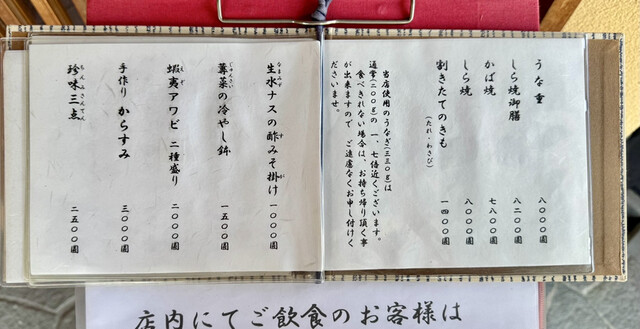 うな重 八〇〇〇圓
しら焼御膳 八二〇〇圓
かば焼 七八〇〇圓
しら焼 八〇〇〇圓
割きたてのきも 一四〇〇圓
(たれ・わさび)
当店使用のうなぎ(三三〇g)は
通常(二〇〇g)の 一、七倍近くございます。
食べきれない場合は、お持ち帰り頂く事
が出来ますので ご遠慮なくお申し付けく
ださいませ。
生水ナスの酢みそ掛け 一〇〇〇圓
蓴菜の冷やし鉢 一五〇〇圓
じゅんさい
蝦夷アワビ 二種盛り 二〇〇〇圓
えぞ
手作り からすみ 三〇〇〇圓
珍味三点 二五〇〇圓
店内にてご飲食のお客様は